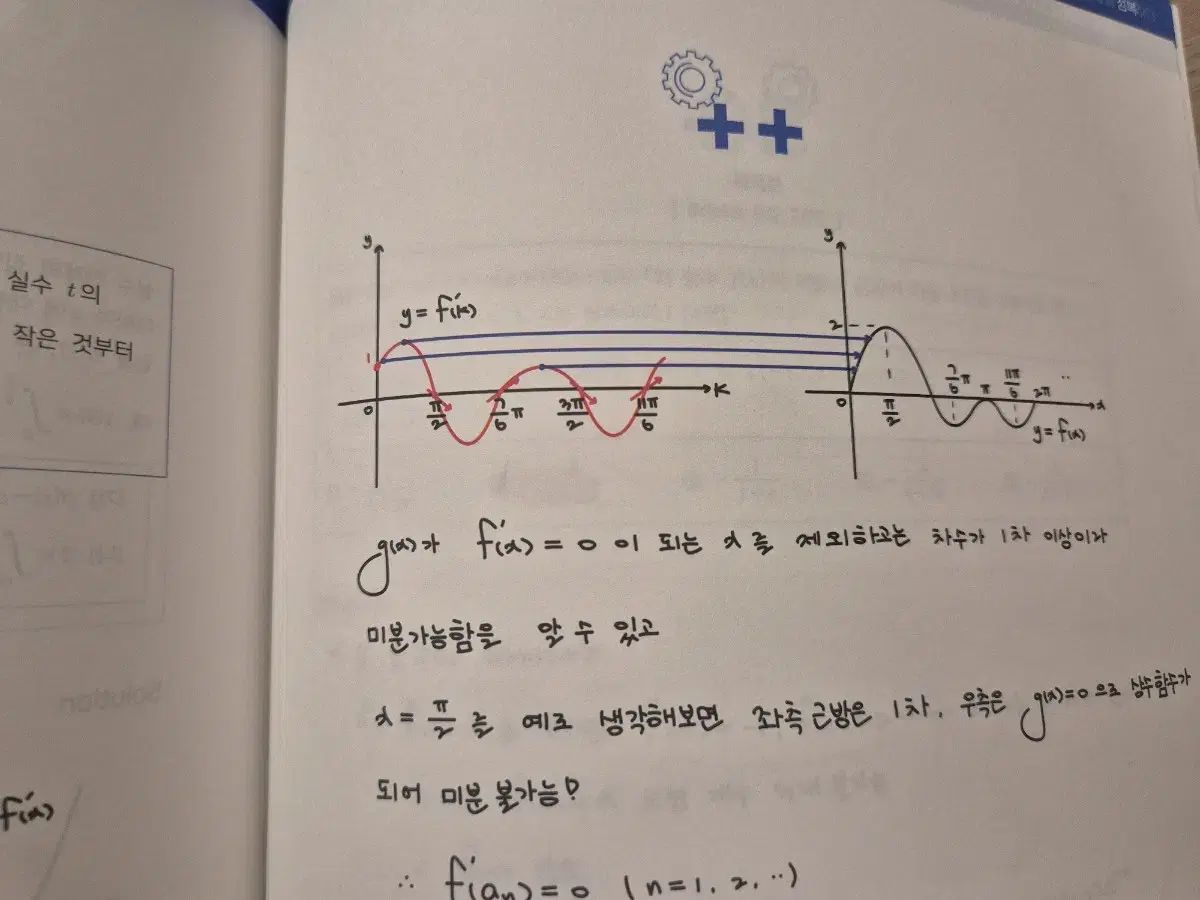 실수 t의
작은 것부터
f'(x)
++
y
y = f'(x)
1
0
π/2
7/6 π
3π/2
11π/6
K
y
2
0
π/2
7/6 π
π
11π/6
2π ..
x
y = f(x)
g(x)가 f'(x) = 0 이 되는 x를 제외하고는 차수가 1차 이상이라
미분가능함을 알 수 있고
x = π/2 를 예로 생각해보면 좌측 근방은 1차, 우측은 g(x)=0 으로 상수함수가
되어 미분 불가능!
∴ f'(an) = 0 (n=1, 2, ..)